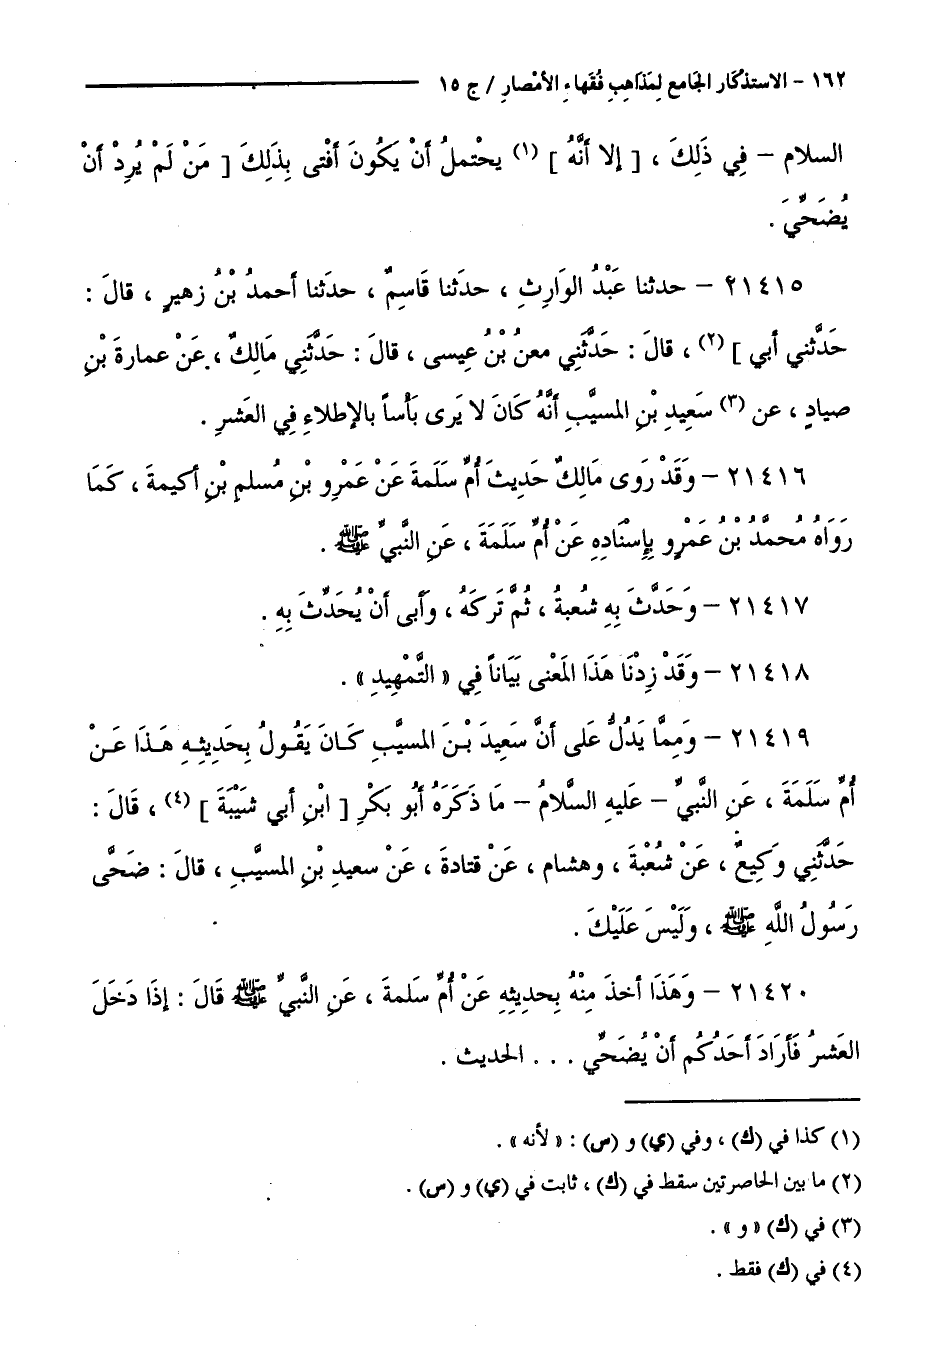 ١٦٢ - الاستذكار الجامع لِمَذاهِبِ فُقَهاءِ الأمْصارِ / ج ١٥
السلام – فِي ذَلِكَ ، [ إلا أنَّهُ ] (١) يحْتملُ أنْ يَكُونَ أفْتى بِذَلِكَ [ مَنْ لَمْ يُرِدْ أنْ
يُضَحِّيَ .
٢١٤١٥ – حدثنا عَبْدُ الوَارِثِ ، حدَثنا قَاسِمٌ ، حدَثنا أحمدُ بْنُ زهيرٍ ، قالَ :
حَدَّثني أبي ] (٢) ، قالَ : حَدَّثَنِي معنُ بْنُ عِيسى ، قالَ : حَدَّثَنِي مَالِكٌ ، عَنْ عمارةَ بْنِ
صيادٍ ، عن (٣) سَعِيدِ بْنِ المسيَّبِ أنَّهُ كَانَ لا يَرى بَأساً بالإطلاءِ فِي العَشرِ .
٢١٤١٦ – وَقَدْ رَوى مَالِكٌ حَدِيثَ أُمِّ سَلَمةَ عَنْ عَمْرِو بْنِ مُسلمِ بْنِ أكيمةَ ، كَمَا
رَوَاهُ مُحمَّدُ بْنُ عَمْرٍو بِإِسْنَادِهِ عَنْ أُمِّ سَلَمَةَ ، عَنِ النَّبيِّ ﷺ .
٢١٤١٧ – وَحَدَّثَ بِهِ شُعبةُ ، ثُمَّ تَركَهُ ، وَأبى أنْ يُحَدِّثَ بِهِ .
٢١٤١٨ – وَقَدْ زِدْنَا هَذَا المَعْنى بَيَاناً فِي « التَّمْهِيدِ » .
٢١٤١٩ – وَمِمَّا يَدُلُّ عَلى أنَّ سَعِيدَ بْنَ المسيَّبِ كَانَ يَقُولُ بِحَدِيثِهِ هَذَا عَنْ
أُمِّ سَلَمَةَ ، عَنِ النَّبيِّ – عَليهِ السَّلامُ – مَا ذَكَرَهُ أبُو بَكْرِ [ ابْنِ أبي شَيْبَةَ ] (٤) ، قَالَ :
حَدَّثَنِي وَكِيعٌ ، عَنْ شُعْبَةَ ، وهشام ، عَنْ قتادةَ ، عَنْ سعيدِ بْنِ المسيَّبِ ، قالَ : ضَحَّى
رَسُولُ اللَّهِ ﷺ ، وَلَيْسَ عَلَيْكَ .
٢١٤٢٠ – وَهَذَا أخذَ مِنْهُ بِحديثِهِ عَنْ أُمِّ سَلمةَ ، عَنِ النَّبيِّ ﷺ قَالَ : إذَا دَخَلَ
العَشرُ فَأَرَادَ أحَدُكُم أنْ يُضَحِّي . . . الحديث .
(١) كذا في (ك) ، وفي (ي) و (س) : « لأنه » .
(٢) ما بين الحاصرتين سقط في (ك) ، ثابت في (ي) و (س) .
(٣) في (ك) « و » .
(٤) في (ك) فقط .